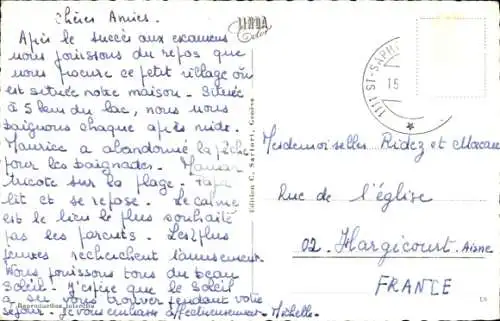 Chères Amies.
Après le succès aux examens
nous jouissons du repos que
nous procure ce petit village où
est située notre maison. Située
à 5 km du lac, nous nous
baignons chaque après midi.
Maurice a abandonné la pêche
pour les baignades. Maman
tricote sur la plage. Papa
lit et se repose. Le calme
est le bien le plus souhaité
par les parents. Les plus
jeunes recherchent l'amusement.
Nous jouissons tous du beau
Soleil. J'espère que le Soleil
a su vous trouver pendant votre
séjour. Je vous embrasse affectueusement. Michelle.
LINDA
Color
Edition C. Sartori, Genève
Reproduction interdite
1111 ST-SAPH
15
Mesdemoiselles Ridez et Macaux
Rue de l'église
02. Hargicourt. Aisne
FRANCE